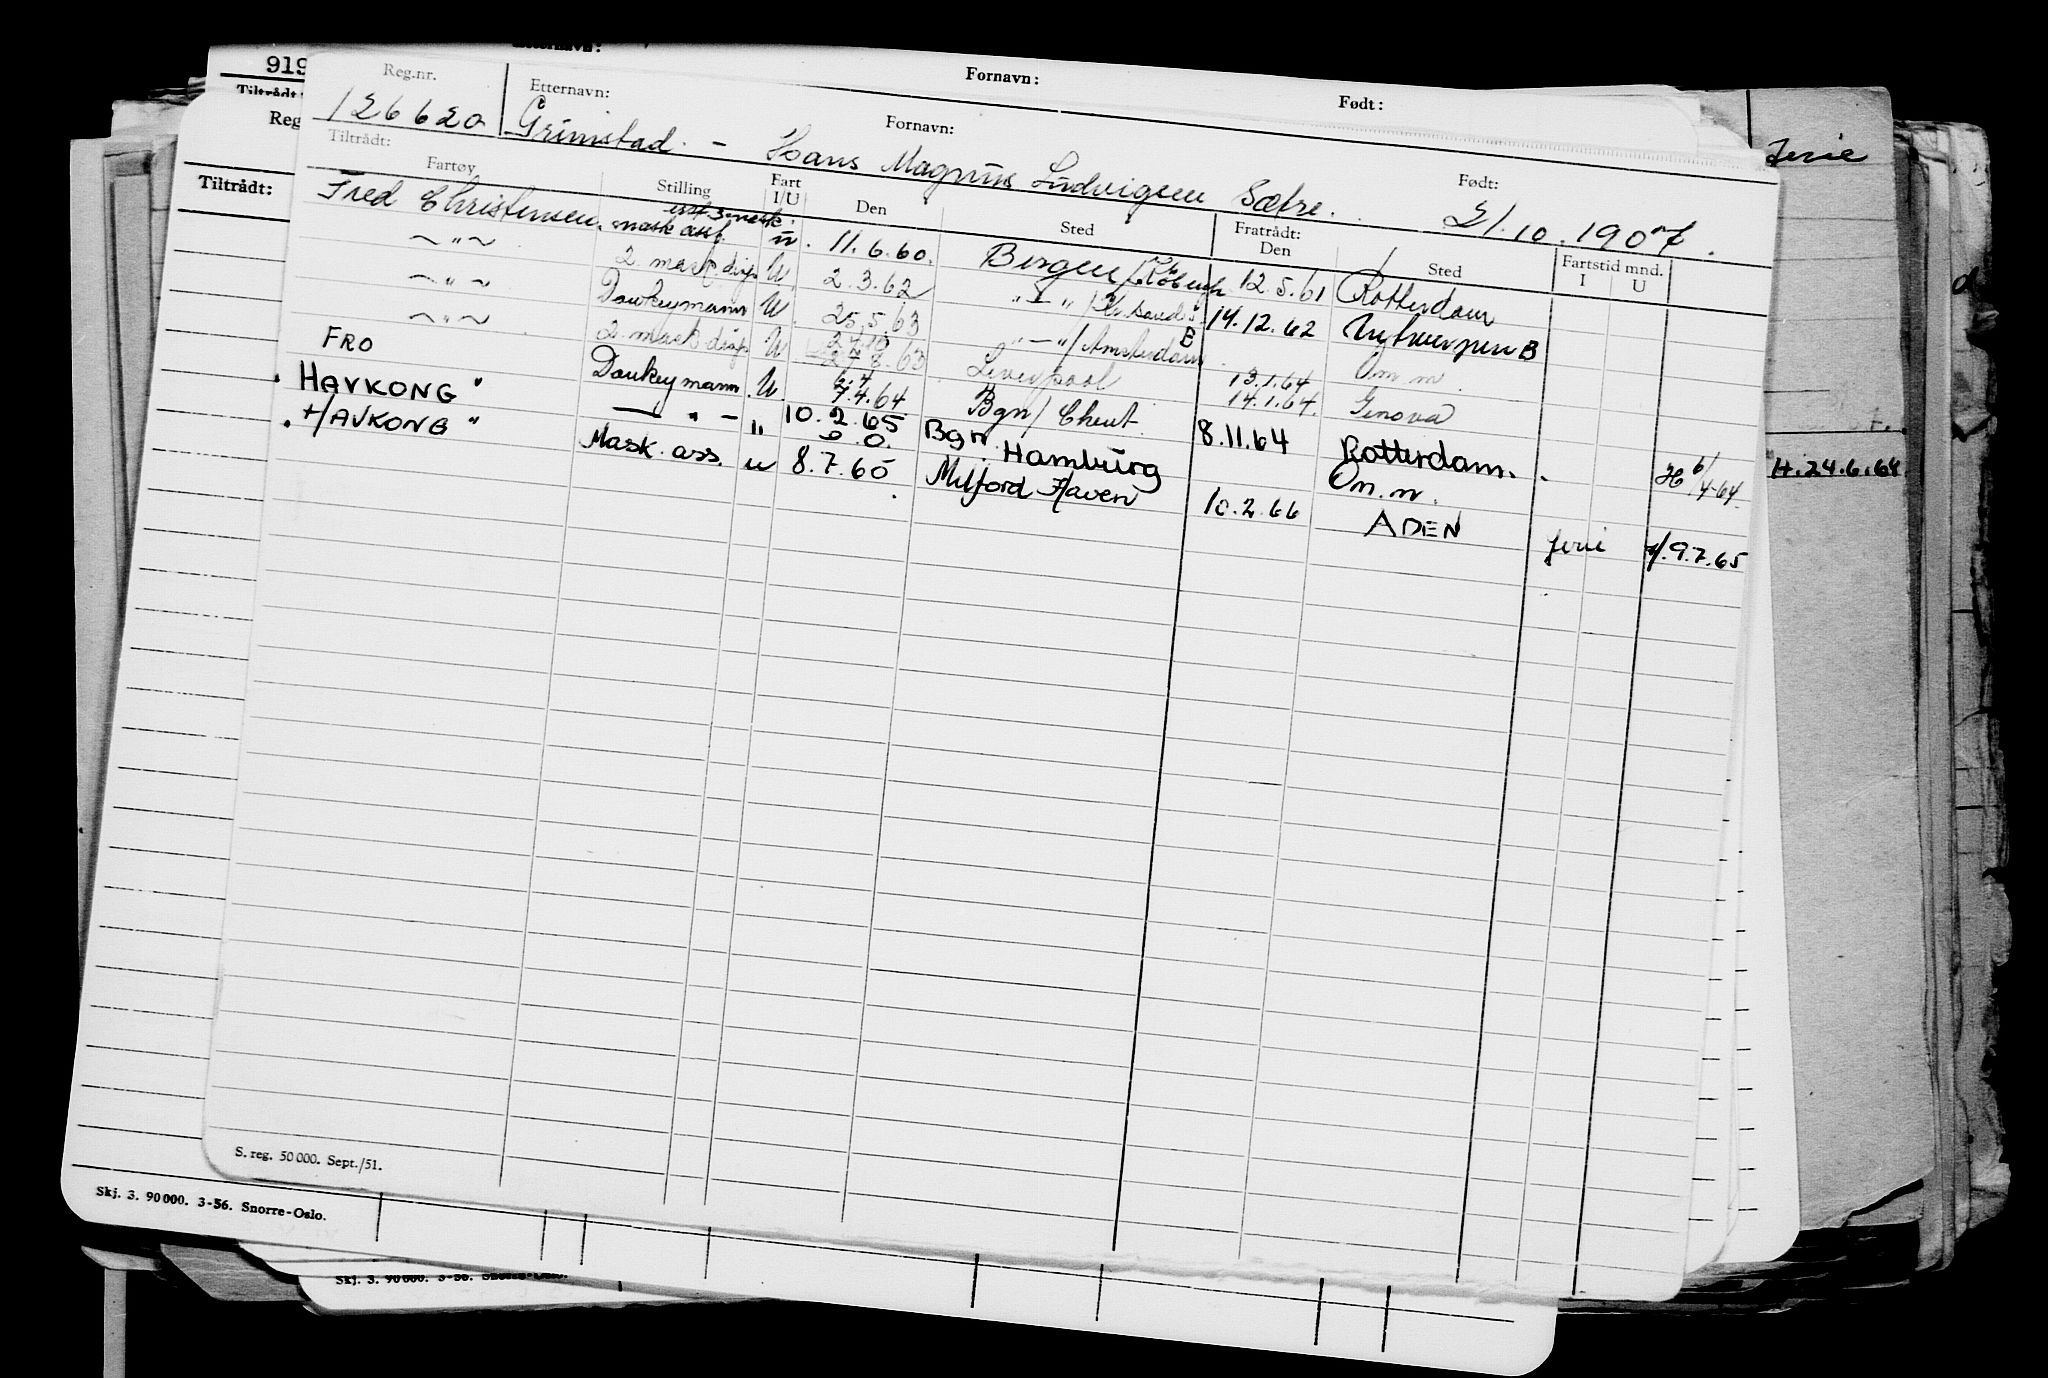 Etternavn: Fornavn: Født:
919
Tiltrådt:
Reg
Tiltrådt:
Reg.nr. Etternavn: Fornavn: Født:
126620 Grimstad. - Hans Magnus Ludvigsen Sætre. 21.10.1907.
Tiltrådt: Fratrådt: Fartstid mnd.
Fartøy Stilling Fart I/U Den Sted Den Sted I U
Fred Christensen. mask ass. u. 11.6.60. Bergen / 12.5.61 Rotterdam
~"~ 2. mask. disp U. 2.3.62 "-" / Kr.sand S. 14.12.62 Antwerpen B
~"~ Donkeymann U. 25.5.63 "-" / Amsterdam 13.1.64 Om m.
~"~ 2. mask disp U 8.63 Liverpool 14.1.64. Genova
FRO Donkeymann U. 7.4.64 Bgn / Ghent. 8.11.64 Rotterdam. H 6/4-64
"HAVKONG" — " — " 10.2.65 Bgn. Hamburg Om.m.
"HAVKONG" Mask. ass. u 8.7.65 Milford Haven 10.2.66 ADEN ferie 9.7.65
ferie
H.24.6.64
S. reg. 50 000. Sept./51.
Skj. 3. 90 000. 3-56. Snorre-Oslo.
Skj. 3. 90 000. 3-56. Snorre-Oslo.